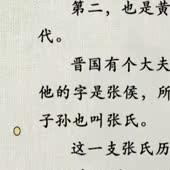 第二，也是黄
代。
晋国有个大夫
他的字是张侯，所
子孙也叫张氏。
这一支张氏历